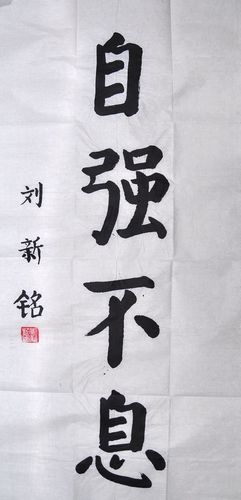 自强不息
刘新铭